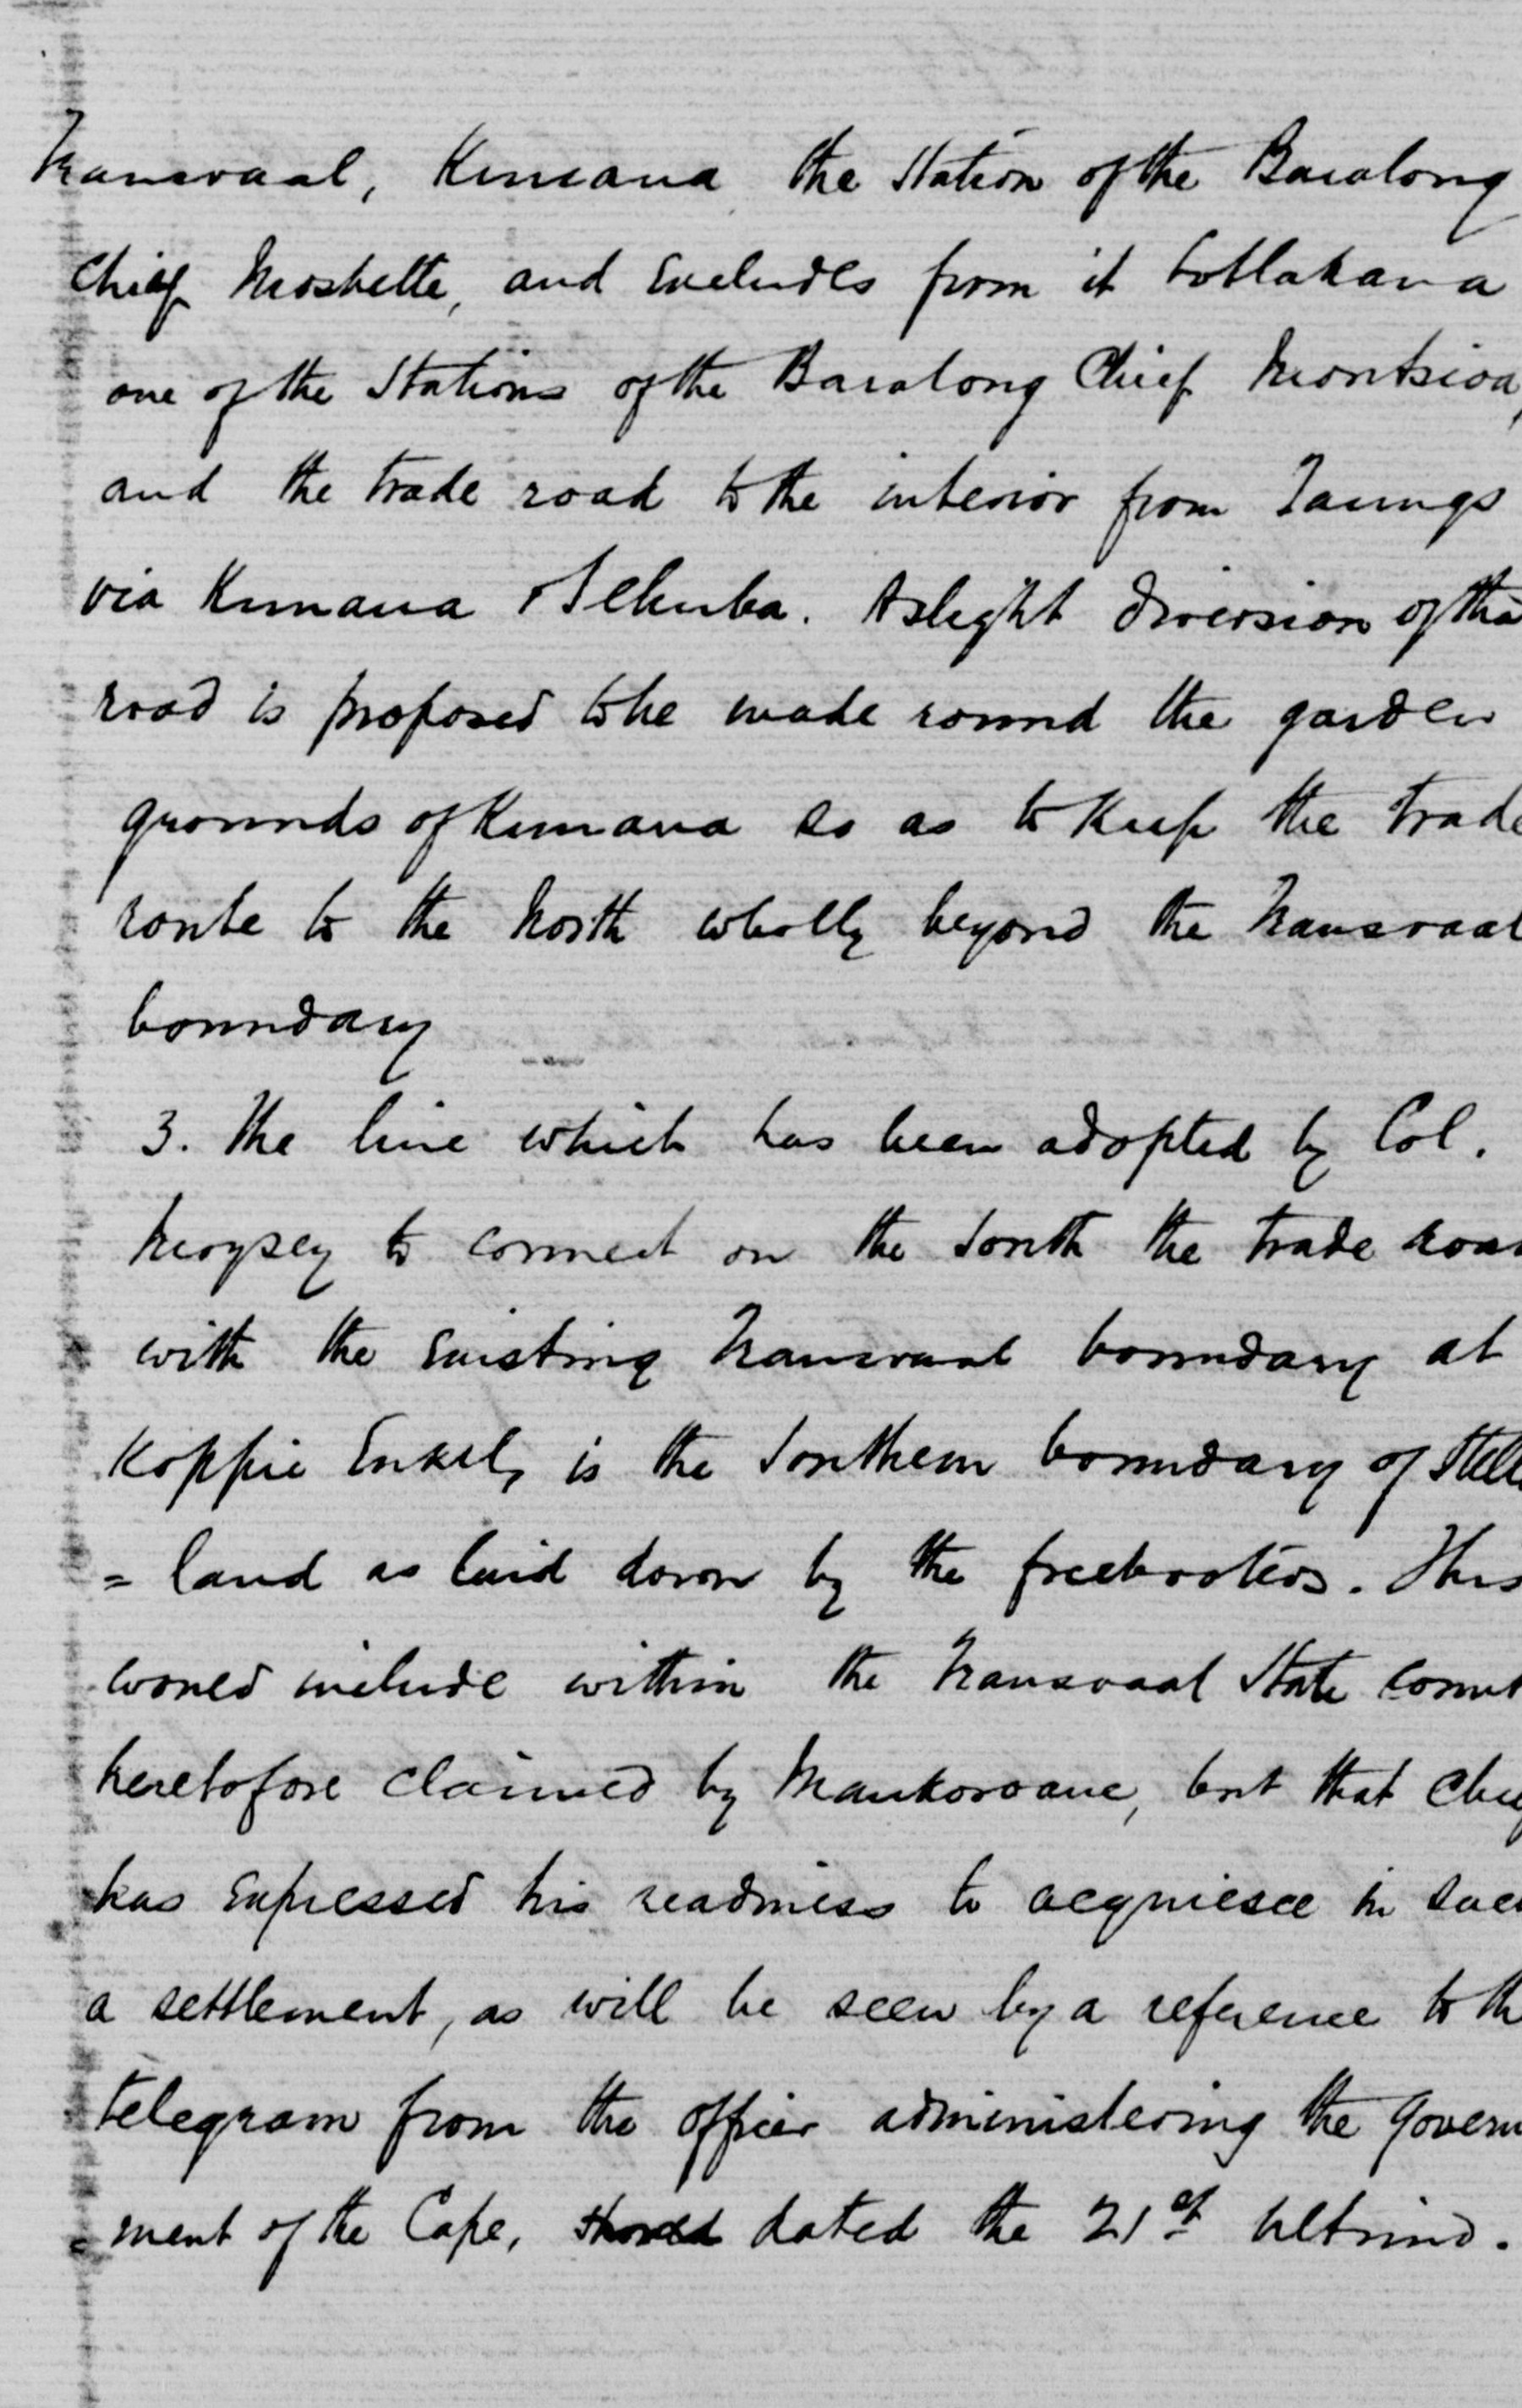 Transvaal, Kunana the Station of the Baralong
Chief Moshette, and Excludes from it Potlakana
one of the Stations of the Baralong Chief Montsioa,
and the trade road to the interior from Taungs
via Kunana & Sehuba. A slight diversion of tha
road is proposed to be made round the garden
grounds of Kunana so as to Keep the trade
route to the North wholly beyond the Transvaal
boundary
3. The line which has been adopted by Col.
Moysey to connect on the South the trade roa
with the Existing Transvaal boundary at
Koppie Enkel, is the Southern boundary of Stell
= land as laid down by the freebooters. This
would include within the Transvaal State count
heretofore claimed by Mankoroane, but that Chie
has Expressed his readiness to acquiesce in suc
a settlement, as will be seen by a reference to th
telegram from the officer administering the Govern
= ment of the Cape, dated the 21st Ultimo.